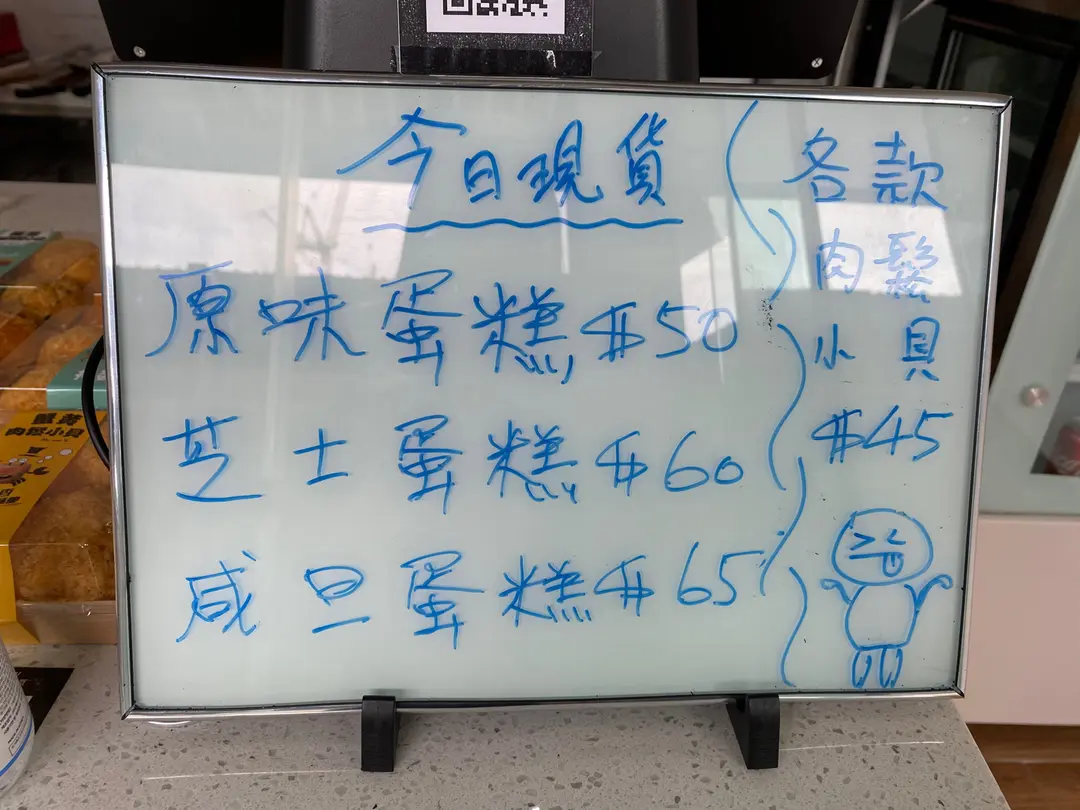 今日現貨
原味蛋糕 $50
芝士蛋糕 $60
咸旦蛋糕 $65
各款
肉鬆
小貝
$45
薑黃
肉鬆小貝